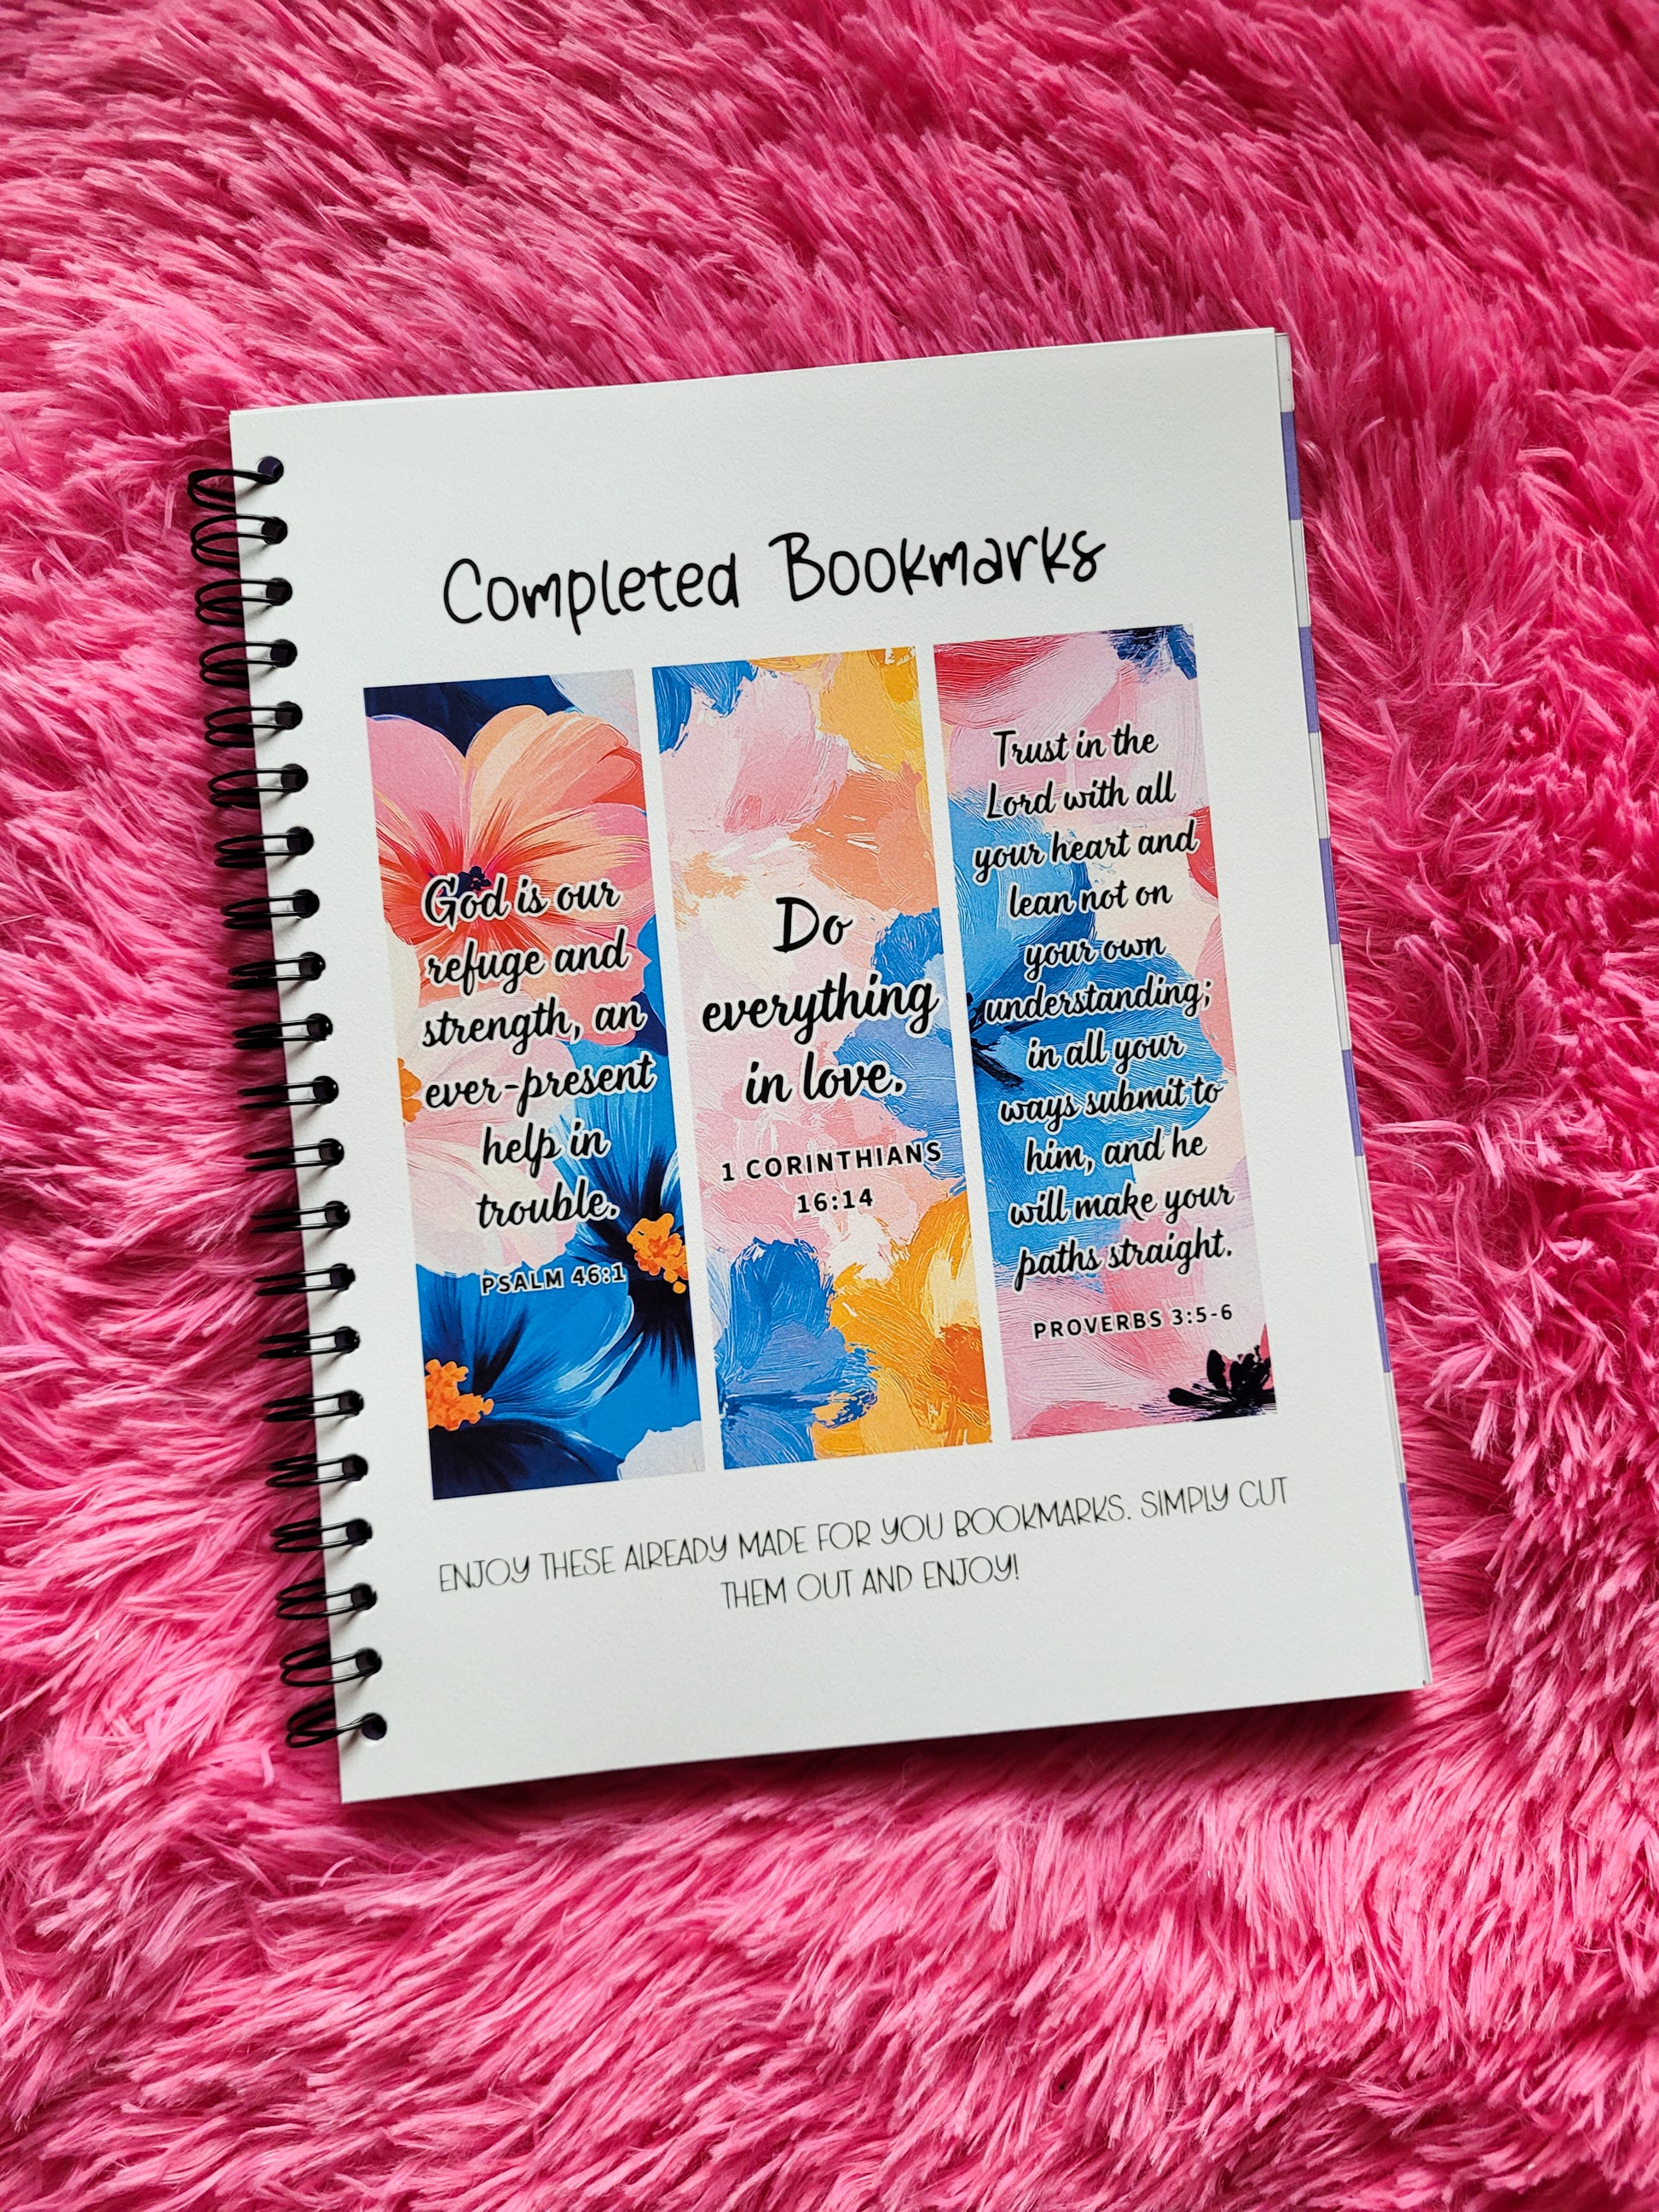 Completed Bookmarks
God is our
refuge and
strength, an
ever-present
help in
trouble.
PSALM 46:1
Do
everything
in love.
1 CORINTHIANS
16:14
Trust in the
Lord with all
your heart and
lean not on
your own
understanding;
in all your
ways submit to
him, and he
will make your
paths straight.
PROVERBS 3:5-6
ENJOY THESE ALREADY MADE FOR YOU BOOKMARKS. SIMPLY CUT
THEM OUT AND ENJOY!